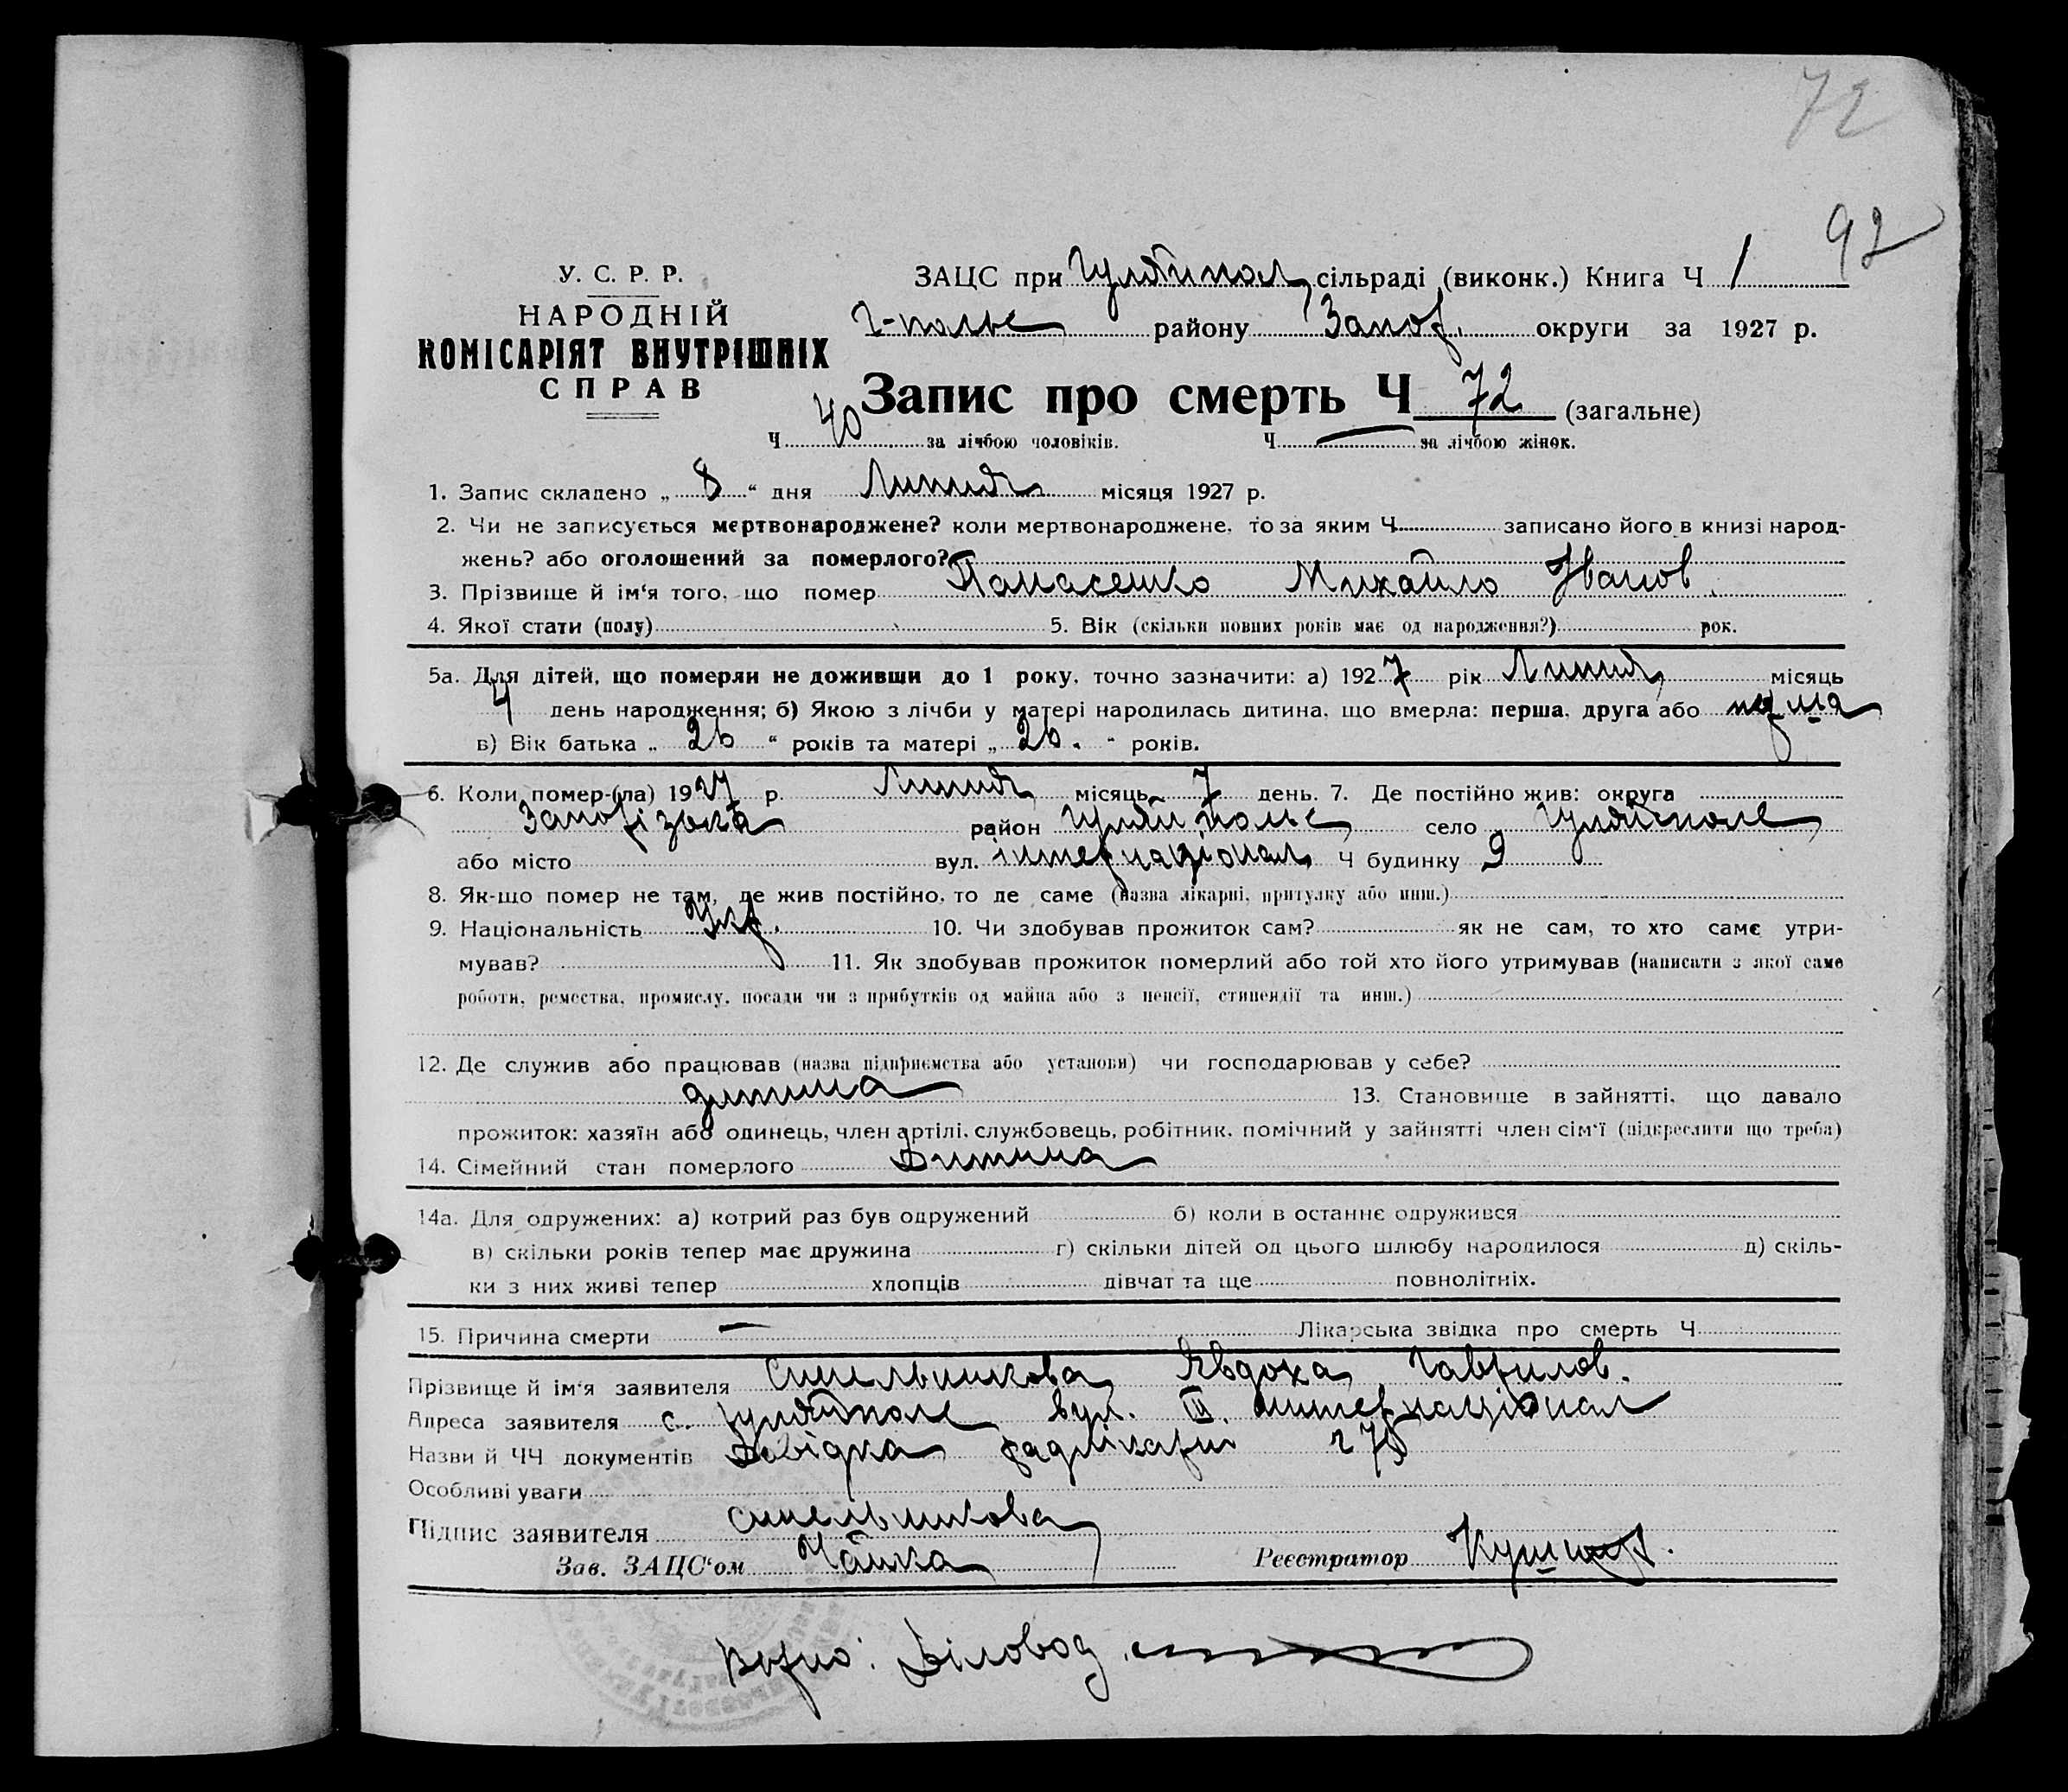 72
92
У. С. Р. Р.
НАРОДНІЙ
КОМІСАРІЯТ ВНУТРІШНІХ
СПРАВ
ЗАЦС при Гуляйпол, сільраді (виконк.) Книга Ч 1
Г-полье району Запор. округи за 1927 р.
Запис про смерть Ч 72 (загальне)
Ч 40 за лічбою чоловіків. Ч — за лічбою жінок.
1. Запис складено „ 8 “ дня Липня місяця 1927 р.
2. Чи не записується мертвонароджене? коли мертвонароджене, то за яким Ч записано його в книзі народ-
жень? або оголошений за померлого?
3. Прізвище й ім‘я того, що помер Панасенко Михайло Іванов.
4. Якої стати (полу) 5. Вік (скільки повних років має од народження?) рок.
5а. Для дітей, що померли не доживши до 1 року, точно зазначити: а) 1927 рік Липня місяць
4 день народження; б) Якою з лічби у матері народилась дитина, що вмерла: перша, друга або перша
в) Вік батька „ 26 “ років та матері „ 26. “ років.
6. Коли помер-(ла) 1927 р. Липня місяць 7 день. 7. Де постійно жив: округа
Запорізька район Гуляйполье село Гуляйполе
або місто вул. інтернаціонал Ч будинку 9
8. Як-що помер не там, де жив постійно, то де саме (назва лікарні, притулку або инш.)
9. Національність Укр. 10. Чи здобував прожиток сам? як не сам, то хто саме утри-
мував? 11. Як здобував прожиток померлий або той хто його утримував (написати з якої саме
роботи, ремества, промислу, посади чи з прибутків од майна або з пенсії, стипендії та инш.)
12. Де служив або працював (назва підприємства або установи) чи господарював у себе?
дитина 13. Становище в зайнятті, що давало
прожиток: хазяїн або одинець, член артілі, службовець, робітник, помічний у зайнятті член сім‘ї (підкреслити що треба)
14. Сімейний стан померлого Дитина
14а. Для одружених: а) котрий раз був одружений б) коли в останнє одружився
в) скільки років тепер має дружина г) скільки дітей од цього шлюбу народилося д) скіль-
ки з них живі тепер хлопців дівчат та ще повнолітніх.
15. Причина смерти — Лікарська звідка про смерть Ч
Прізвище й ім‘я заявителя Синельникова Явдоха Гаврилов.
Адреса заявителя с. Гуляйполе вул. III. интернаціонал
Назви й ЧЧ документів Довідка радлікарні
Особливі уваги
Підпис заявителя Синельникова
Зав. ЗАЦС‘ом Чайка Реєстратор
Верно: Біловод